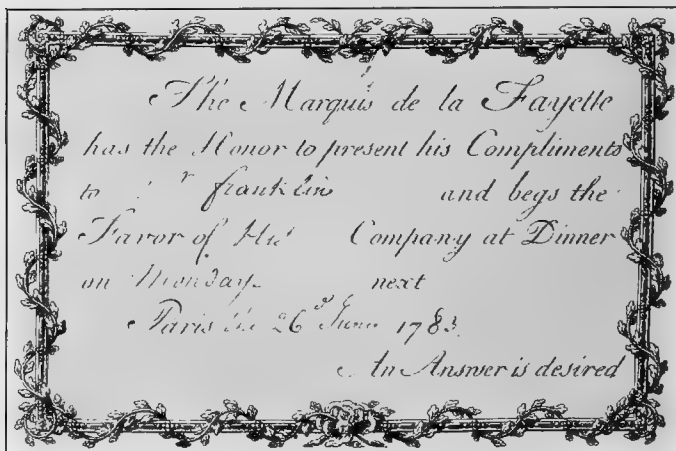 The Marquis de la Fayette
has the Honor to present his Compliments
to r franklin and begs the
Favor of His Company at Dinner
on Monday next
Paris the 26 June 1783.
An Answer is desired